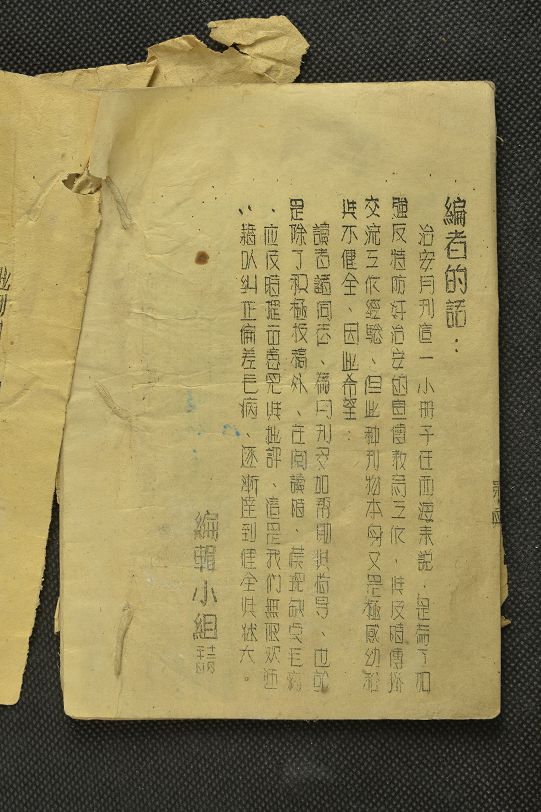 編者的話：
治安月刊這一小冊子在西海來說．是為了加
強反特防奸治安的宣傳教育工作、與反映傳搞
交流工作經驗、但此種刊物本身又是極感幼稚
與不健全、因此希望：
讀者諸同志、為月刊多加幫助與指导、也就
是除了积極投稿外、在閱讀時、發現缺点毛病
、应及時提出意見與批評、這是我們無限欢迎
，藉以糾正偏差毛病、逐漸達到健全與狀大。
編輯小組 請